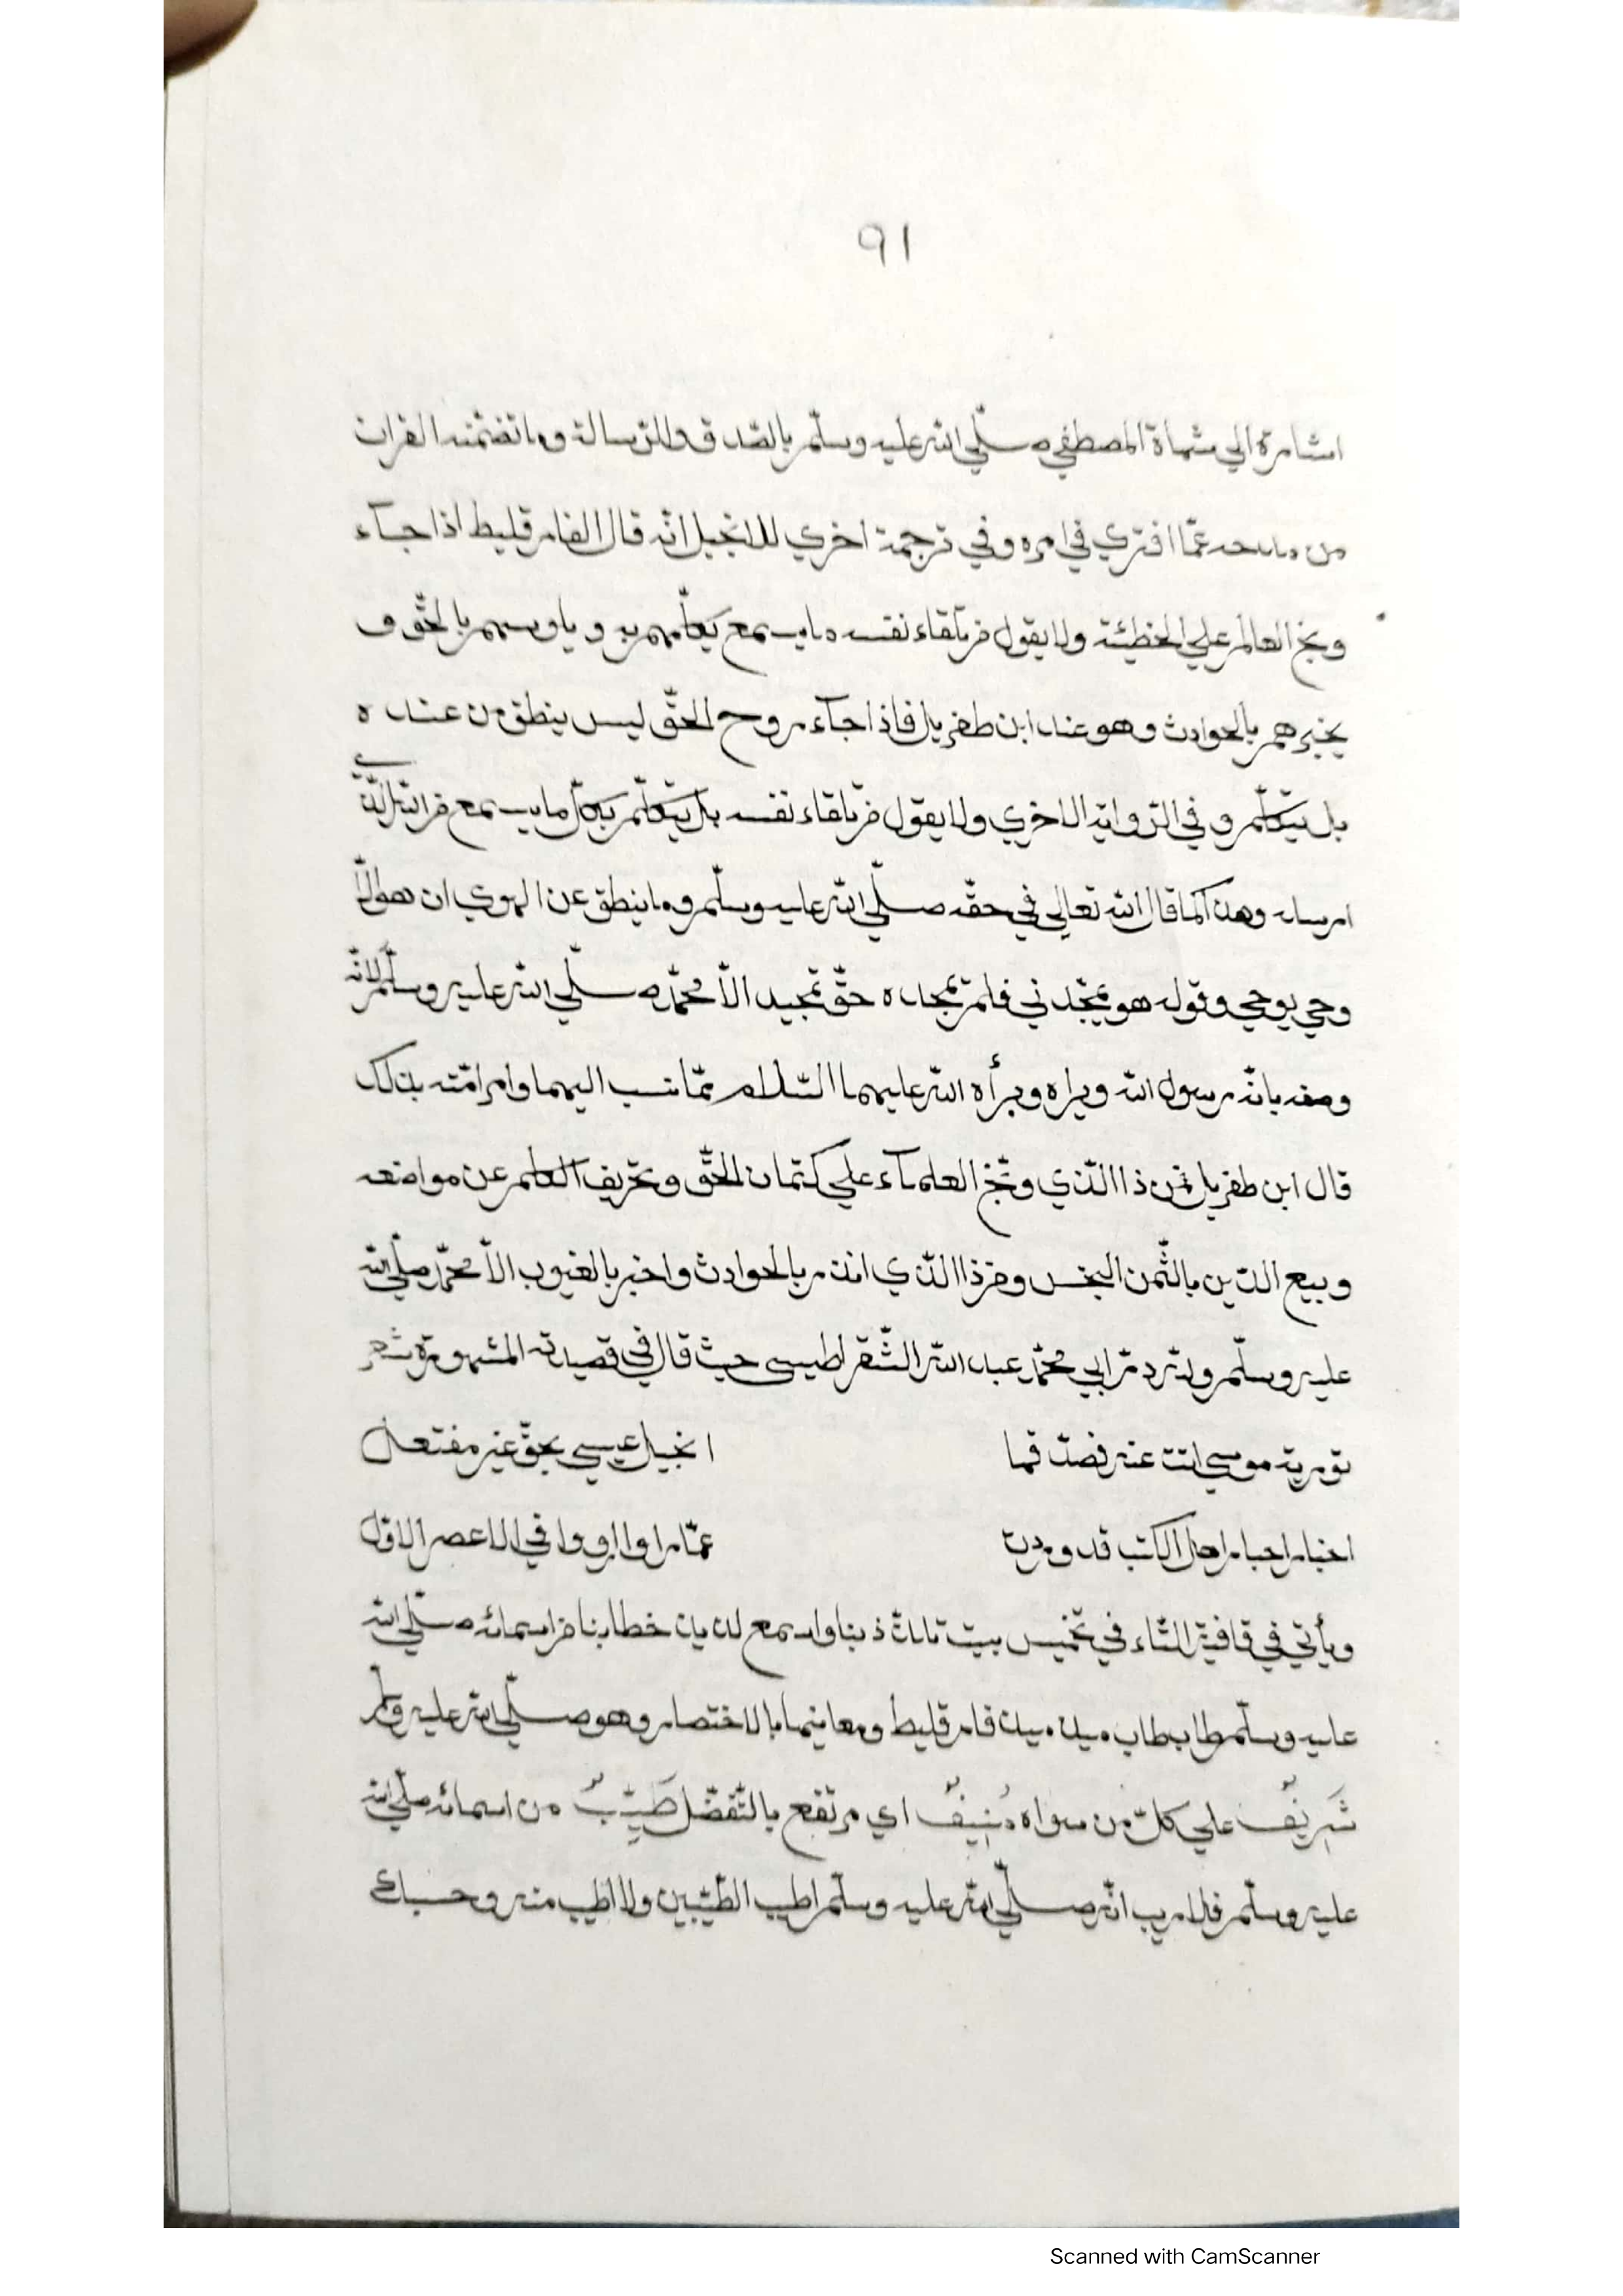 ٩١
اشارة الي شهادة المصطفي صلّي الله عليه وسلّم بالصّدق والرّسالة وما تضمّنه القران
من مدحه عمّا افتري في امره وفي ترجمة اخري للانجيل انّه قال الفارقليط اذا جآء
وبخ العالم علي الخطيئة ولا يقول من تلقاء نفسه ما يسمع يكلّمهم به و ياوسهم بالحقّ و
يخبرهم بالحوادث وهو عند ابن طغر يل فاذا جآء روح الحقّ ليس ينطق من عنده
بل يتكلّم و في الرّواية الاخري ولا يقول من تلقاء نفسه بل يتكلّم بكلّ ما يسمع من الله الّذي
ارسله وهذا كما قال الله تعالي في حقّه صلّي الله عليه وسلّم وما ينطق عن الهوي ان هو الّا
وحي يوحي وقوله هو يمجّدني فلم يمجده حقّ تمجيد الّا محمّد صلّي الله عليه وسلّم لانّه
وصفه بانّه رسول الله وبراه وبرأه الله عليهما السّلام ممّا نسب اليهما وامر امّته بذلك
قال ابن طغر يل فمن ذا الّذي وبّخ العلمآء علي كتمان الحقّ وتحريف الكلم عن مواضعه
وبيع الدّين بالثّمن البخس ومن ذا الّذي انذر بالحوادث واخبر بالغيوب الّا محمّد صلّي الله
عليه وسلّم ولله درّ ابي محمّد عبد الله الشّقراطيسي حيث قال في قصيدته المشهورة شعر
تورية موسي اتت عنه فصدّقها انجيل عيسي بحقّ غير مفتعل
اخبار احبار اهل الكتب قد وردت عمّا راوا او رووا في الاعصر الاول
ويأتي في قافية الثّاء في تخميس بيت ثلاث ذبنا واسمع لذيان خطابنا من اسمائه صلّي الله
عليه وسلّم طاب طاب ميذ ميذ فارقليط ومعاينها بالاختصار وهو صلّي الله عليه وسلّم
شَرِيْفٌ علي كلّ من سواه مُنِيفٌ اي مرتفع بالتّفضّل طَيِّبٌ من اسمائه صلّي الله
عليه وسلّم فلا ريب انّه صلّي الله عليه وسلّم اطيب الطّيّبين ولا اطيب منه وحسبك
Scanned with CamScanner